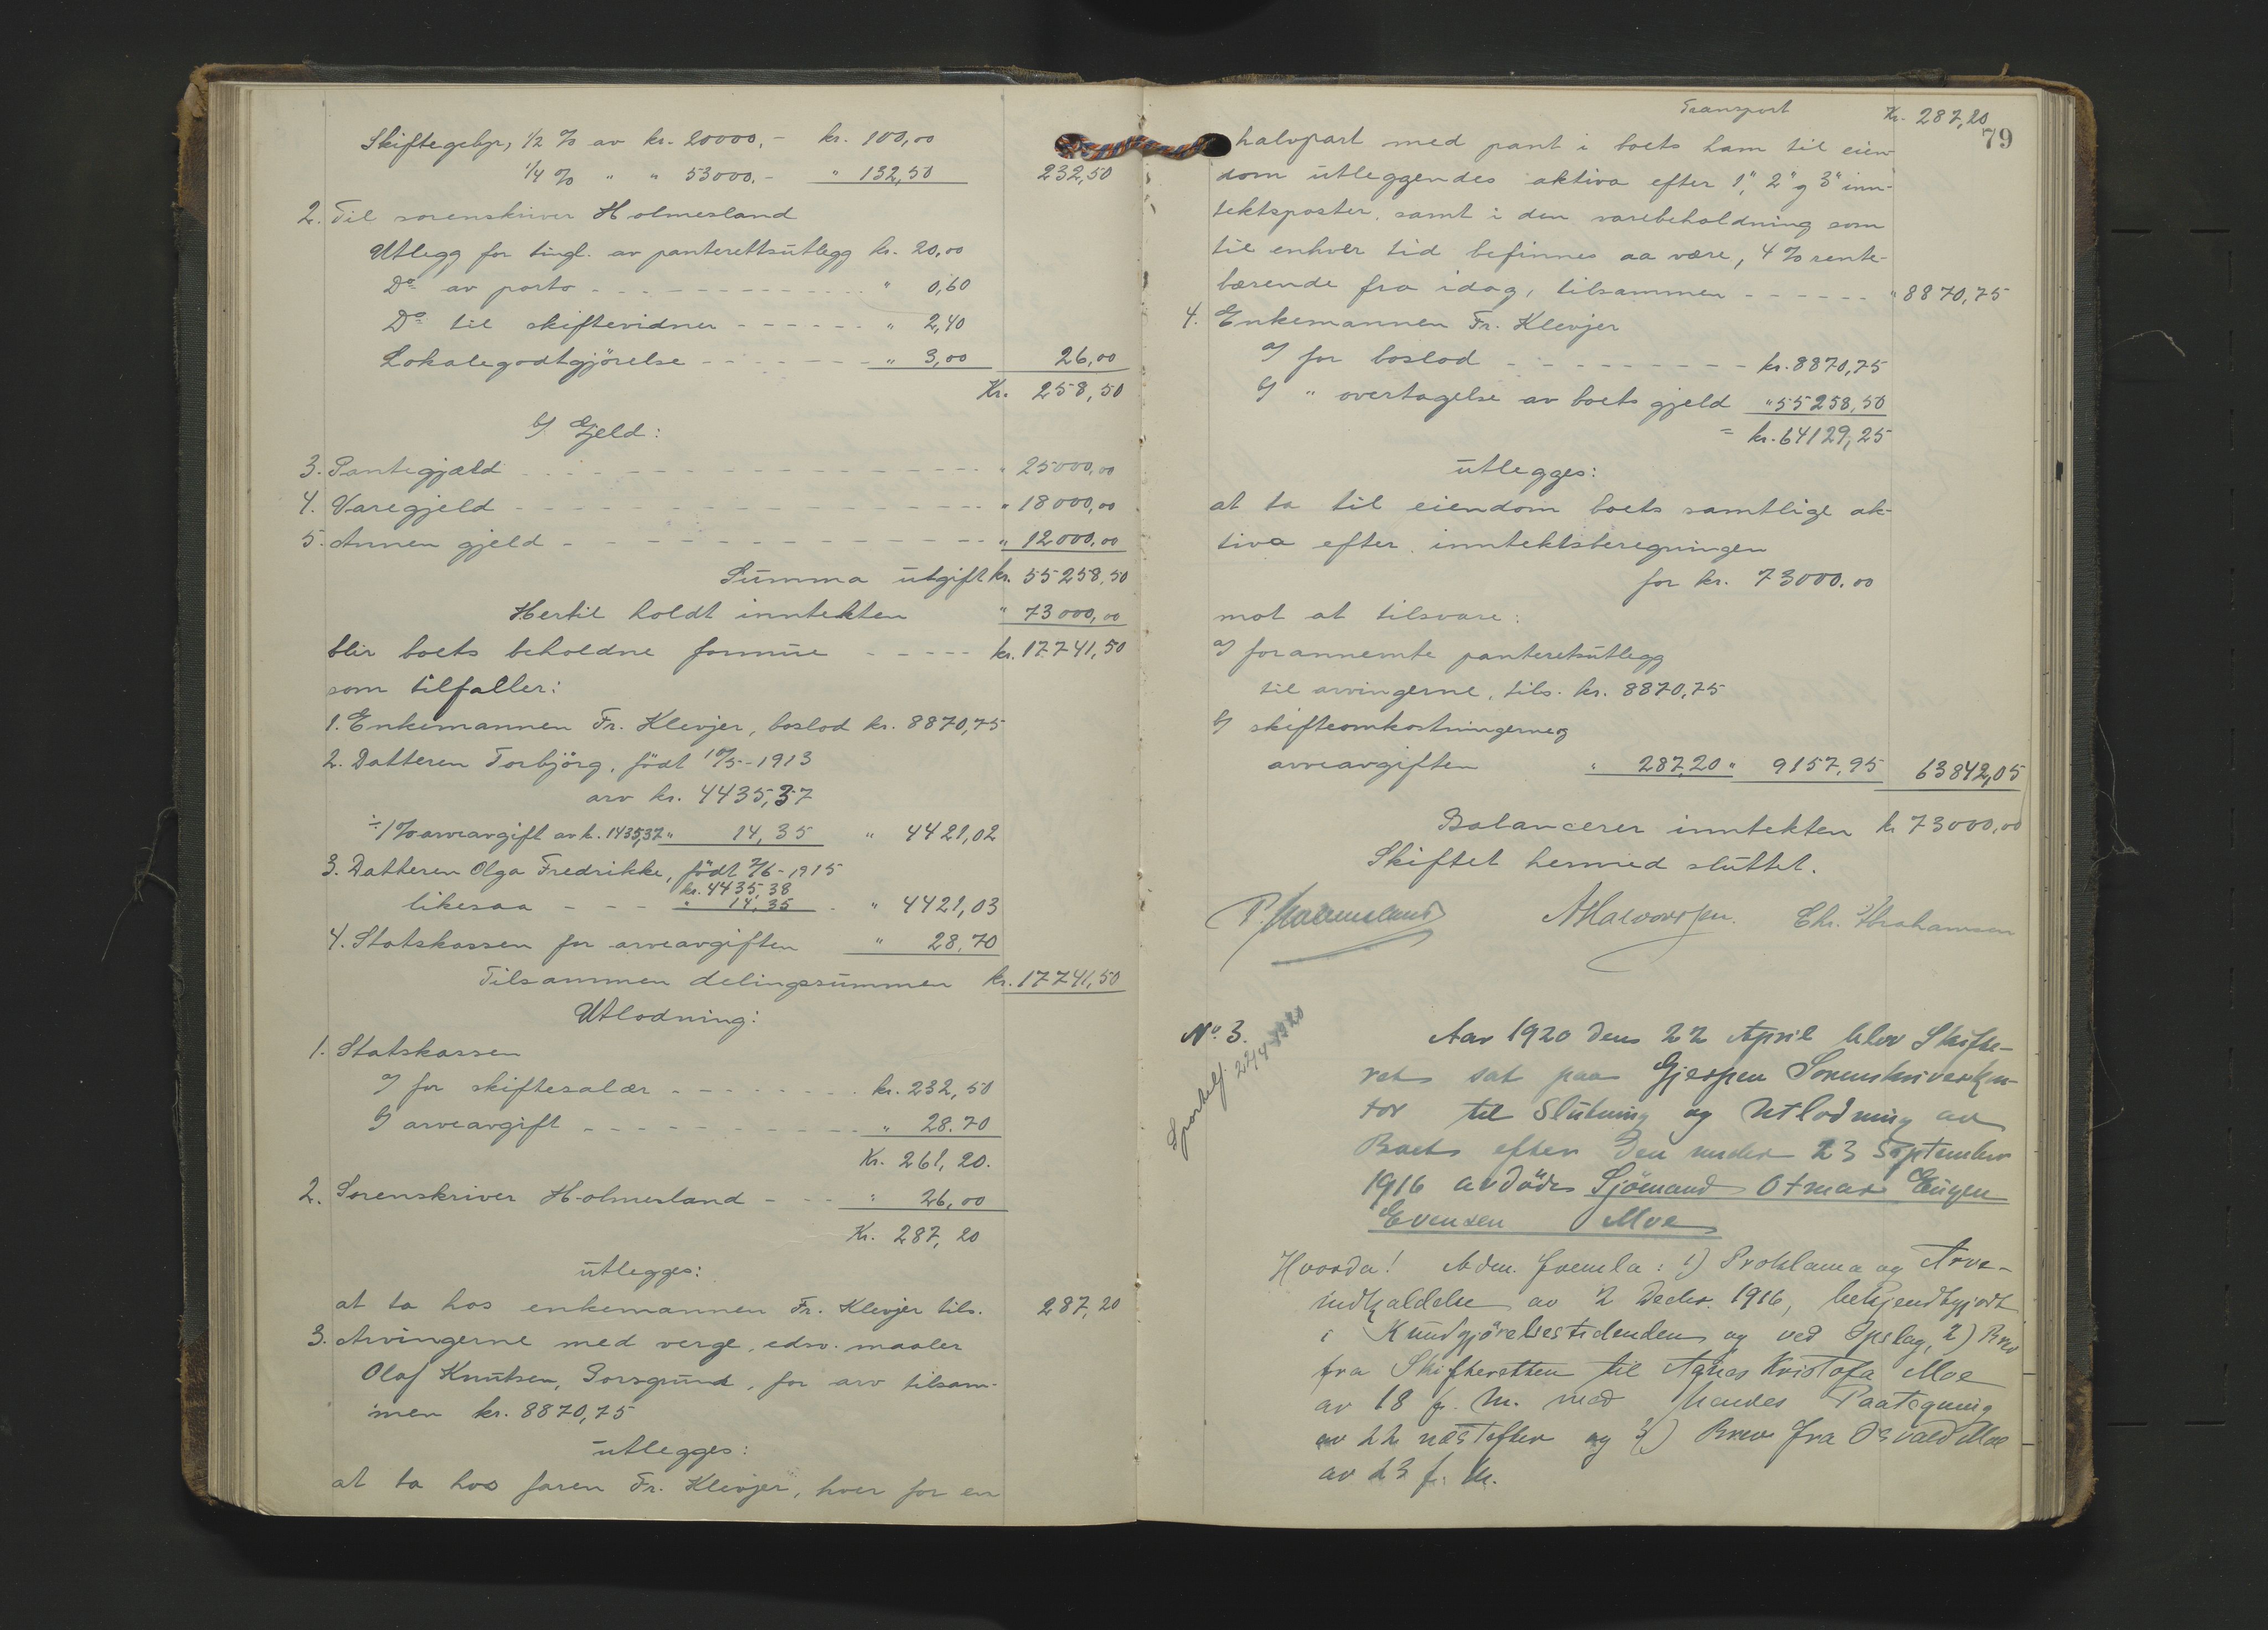 Skiftegebyr, 1/2 % av kr. 20000,- kr. 100,00
1/4 % " " 53000.- " 132,50 232,50
2. Til sorenskriver Holmesland
Utlegg for tingl. av panterettsutlegg kr. 20,00
Do av porto " 0,60
Do til skiftevidner " 2,40
Lokalegodtgjörelse " 3,00 26,00
Kr. 258,50
b/ Gjeld:
3. Pantegjæld " 25000,00
4. Varegjeld " 18000,00
5. Annen gjeld " 12000,00
Summa utgift kr. 55258,50
Hertil holdt inntekten " 73000,00
blir boets beholdne formue kr. 17741,50
som tilfaller:
1. Enkemannen Fr. Klevjer, boslod kr. 8870,75
2. Datteren Torbjörg, födt 10/5-1913
arv kr. 4435,37
÷ 1% arveavgift av k. 1435,37 " 14,35 " 4421,02
3. Datteren Olga Fredrikke, födt 7/6-1915
kr. 4435,38
likesaa " 14,35 " 4421,03
4. Statskassen for arveavgiften " 28,70
Tilsammen delingssummen kr. 17741,50
Utlodning:
1. Statskassen
a/ for skiftesalær kr. 232,50
b/ arveavgift " 28.70
Kr. 261,20.
2. Sorenskriver Holmesland " 26,00
Kr. 287,20
utlegges:
at ta hos enkemannen Fr. Klevjer tils. 287,20
3. Arvingerne med verge, edsv. maaler
Olaf Knutsen, Porsgrund, for arv tilsam-
men kr. 8870,75
utlegges:
at ta hos faren Fr. Klevjer, hver for en
Transport Kr. 287,20
79
halvpart med pant i boets ham til eien-
dom utleggendes aktiva efter 1", 2" g 3" inn-
tektsposter, samt i den varebeholdning som
til enhver tid befinnes aa være, 4 % rente-
bærende fra idag, tilsammen " 8870,75
4. Enkemannen Fr. Klevjer
a/ for boslod kr. 8870,75
b/ " overtagelse av boets gjeld " 55258,50
= kr. 64129,25
utlegges:
at ta til eiendom boets samtlige ak-
tiva efter inntektsberegningen
for kr. 73000.00
mot at tilsvare:
a/ forannemte panteretsutlegg
til arvingerne, tils. kr. 8870,75
b/ skifteomkostningerne og
arveavgiften " 287,20 " 9157,95 63842,05
Balancerer inntekten kr 73000,00
Skiftet hermed sluttet.
P. Holmesland A Halvorsen. Chr. Abrahamsen
No 3. Aar 1920 den 22 April blev Skifte-
22/4 1920
ret sat paa Gjerpen Sorenskriverkon-
tor til Slutning og Utlodning av
Boet efter den under 23 September
1916 avdöde Sjömand Otmar Eugen
Evensen Moe
Hvorda! Adm. fremla: 1) Proklama og Arve-
indkaldelse av 2 Decbr. 1916, bekjendtgjort
i Kundgjörelsestidenden og ved Opslag, 2) Brev
fra Skifteretten til Agnes Kristofa Moe
av 18 f. M. med hendes Paategning
av 22 næstefter og 3) Brev fra Osvald Moe
av 23 f. M.